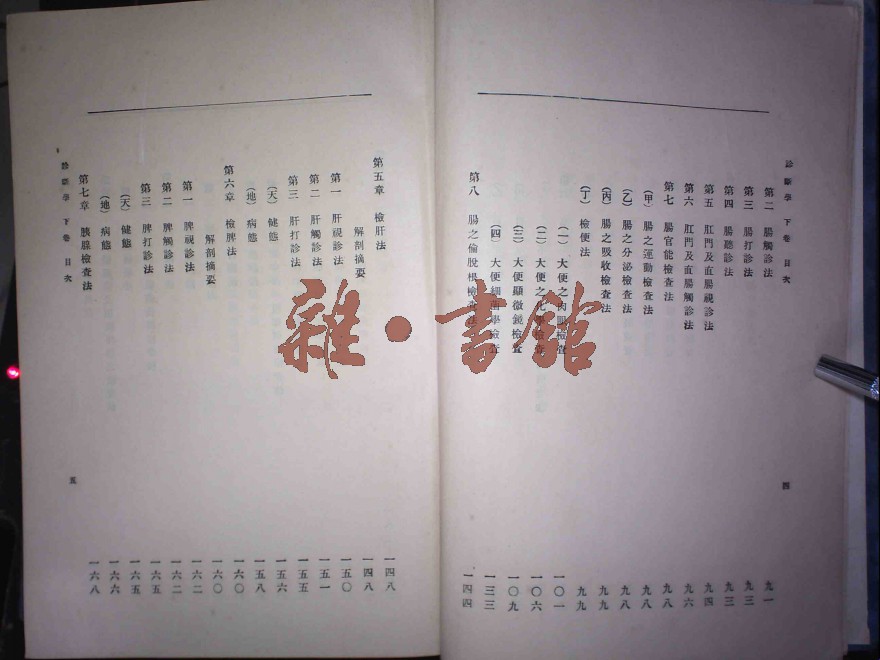 診斷學 下卷 目次
四
第二 腸觸診法 九一
第三 腸打診法 九三
第四 腸聽診法 九三
第五 肛門及直腸視診法 九四
第六 肛門及直腸觸診法 九六
第七 腸官能檢查法 九八
(甲) 腸之運動檢查法 九八
(乙) 腸之分泌檢查法 九八
(丙) 腸之吸收檢查法 九九
(丁) 檢便法 九九
(一) 大便之肉眼檢查 一〇一
(二) 大便之化學檢查 一〇六
(三) 大便顯微鏡檢查 一〇九
(四) 大便細菌學檢查 一三三
第八 腸之倫脫根檢查法 一四四
第五章 檢肝法 一四八
解剖摘要 一四八
第一 肝視診法 一五〇
第二 肝觸診法 一五一
第三 肝打診法 一五五
(天) 健態 一五六
(地) 病態 一五八
第六章 檢脾法 一六〇
解剖摘要 一六〇
第一 脾視診法 一六二
第二 脾觸診法 一六二
第三 脾打診法 一六五
(天) 健態 一六五
(地) 病態 一六六
第七章 胰腺檢查法 一六八
診斷學 下卷 目次
五
雜·書館